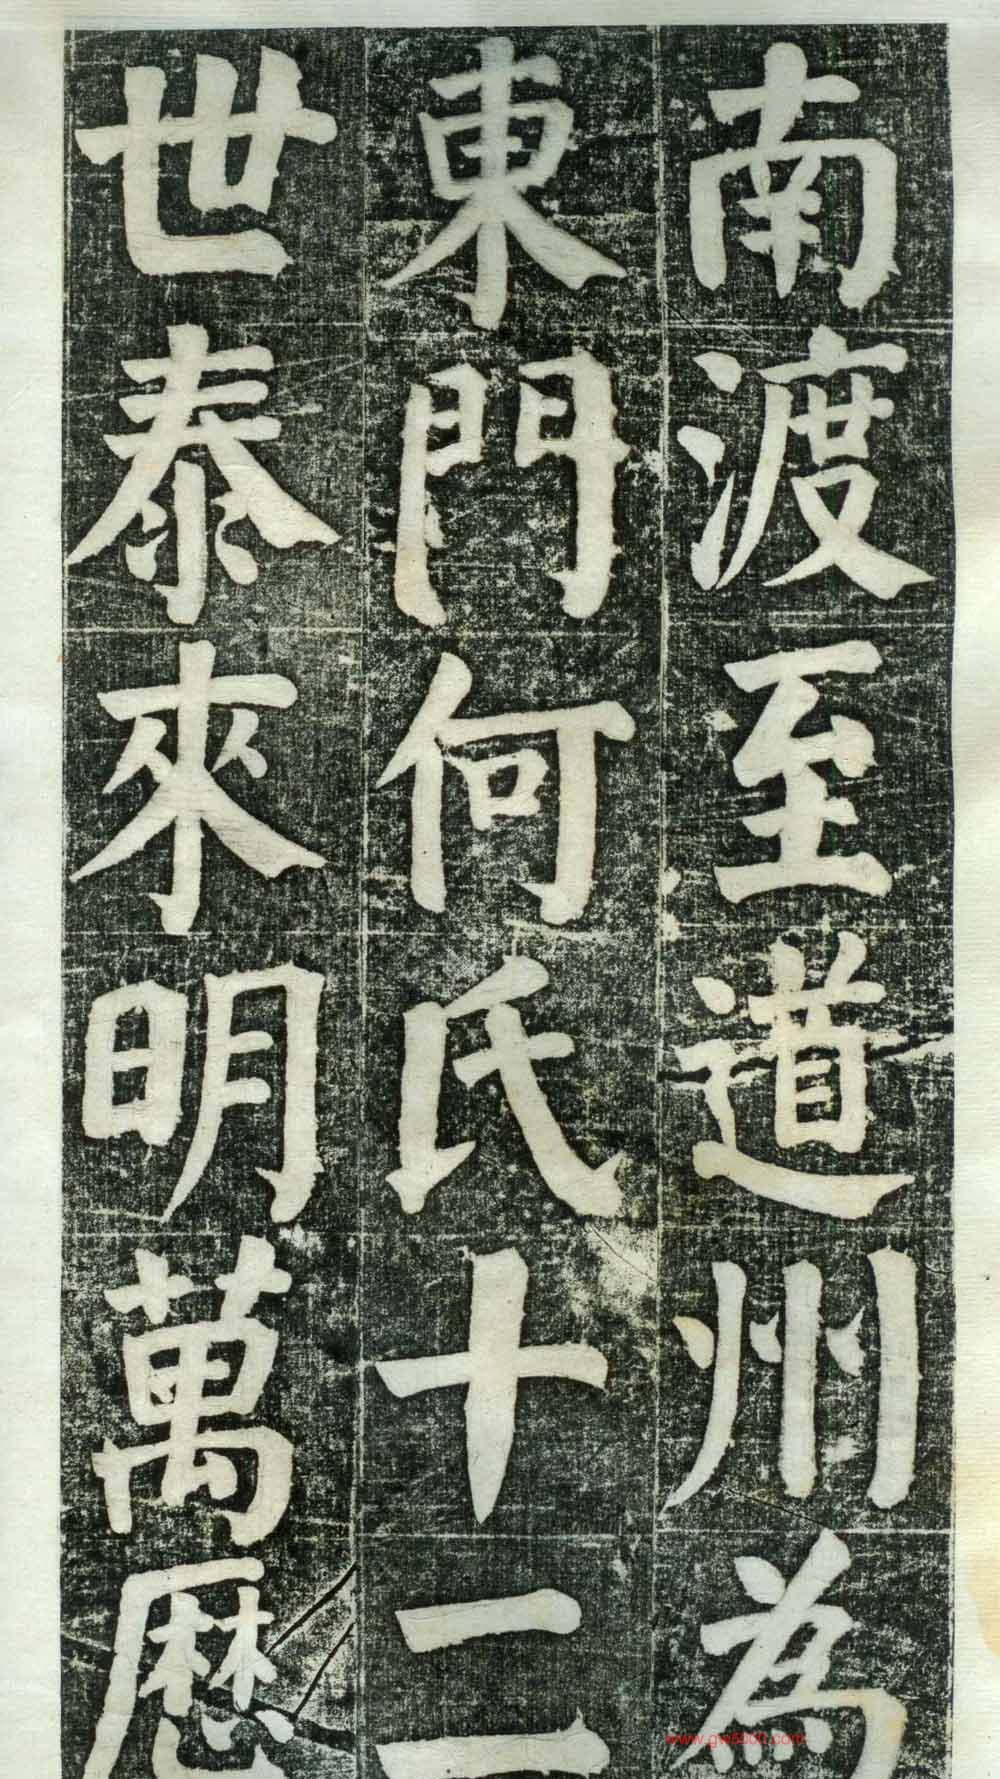 南渡至道州為
東門何氏十二
世泰來明萬
www.gw5000.com